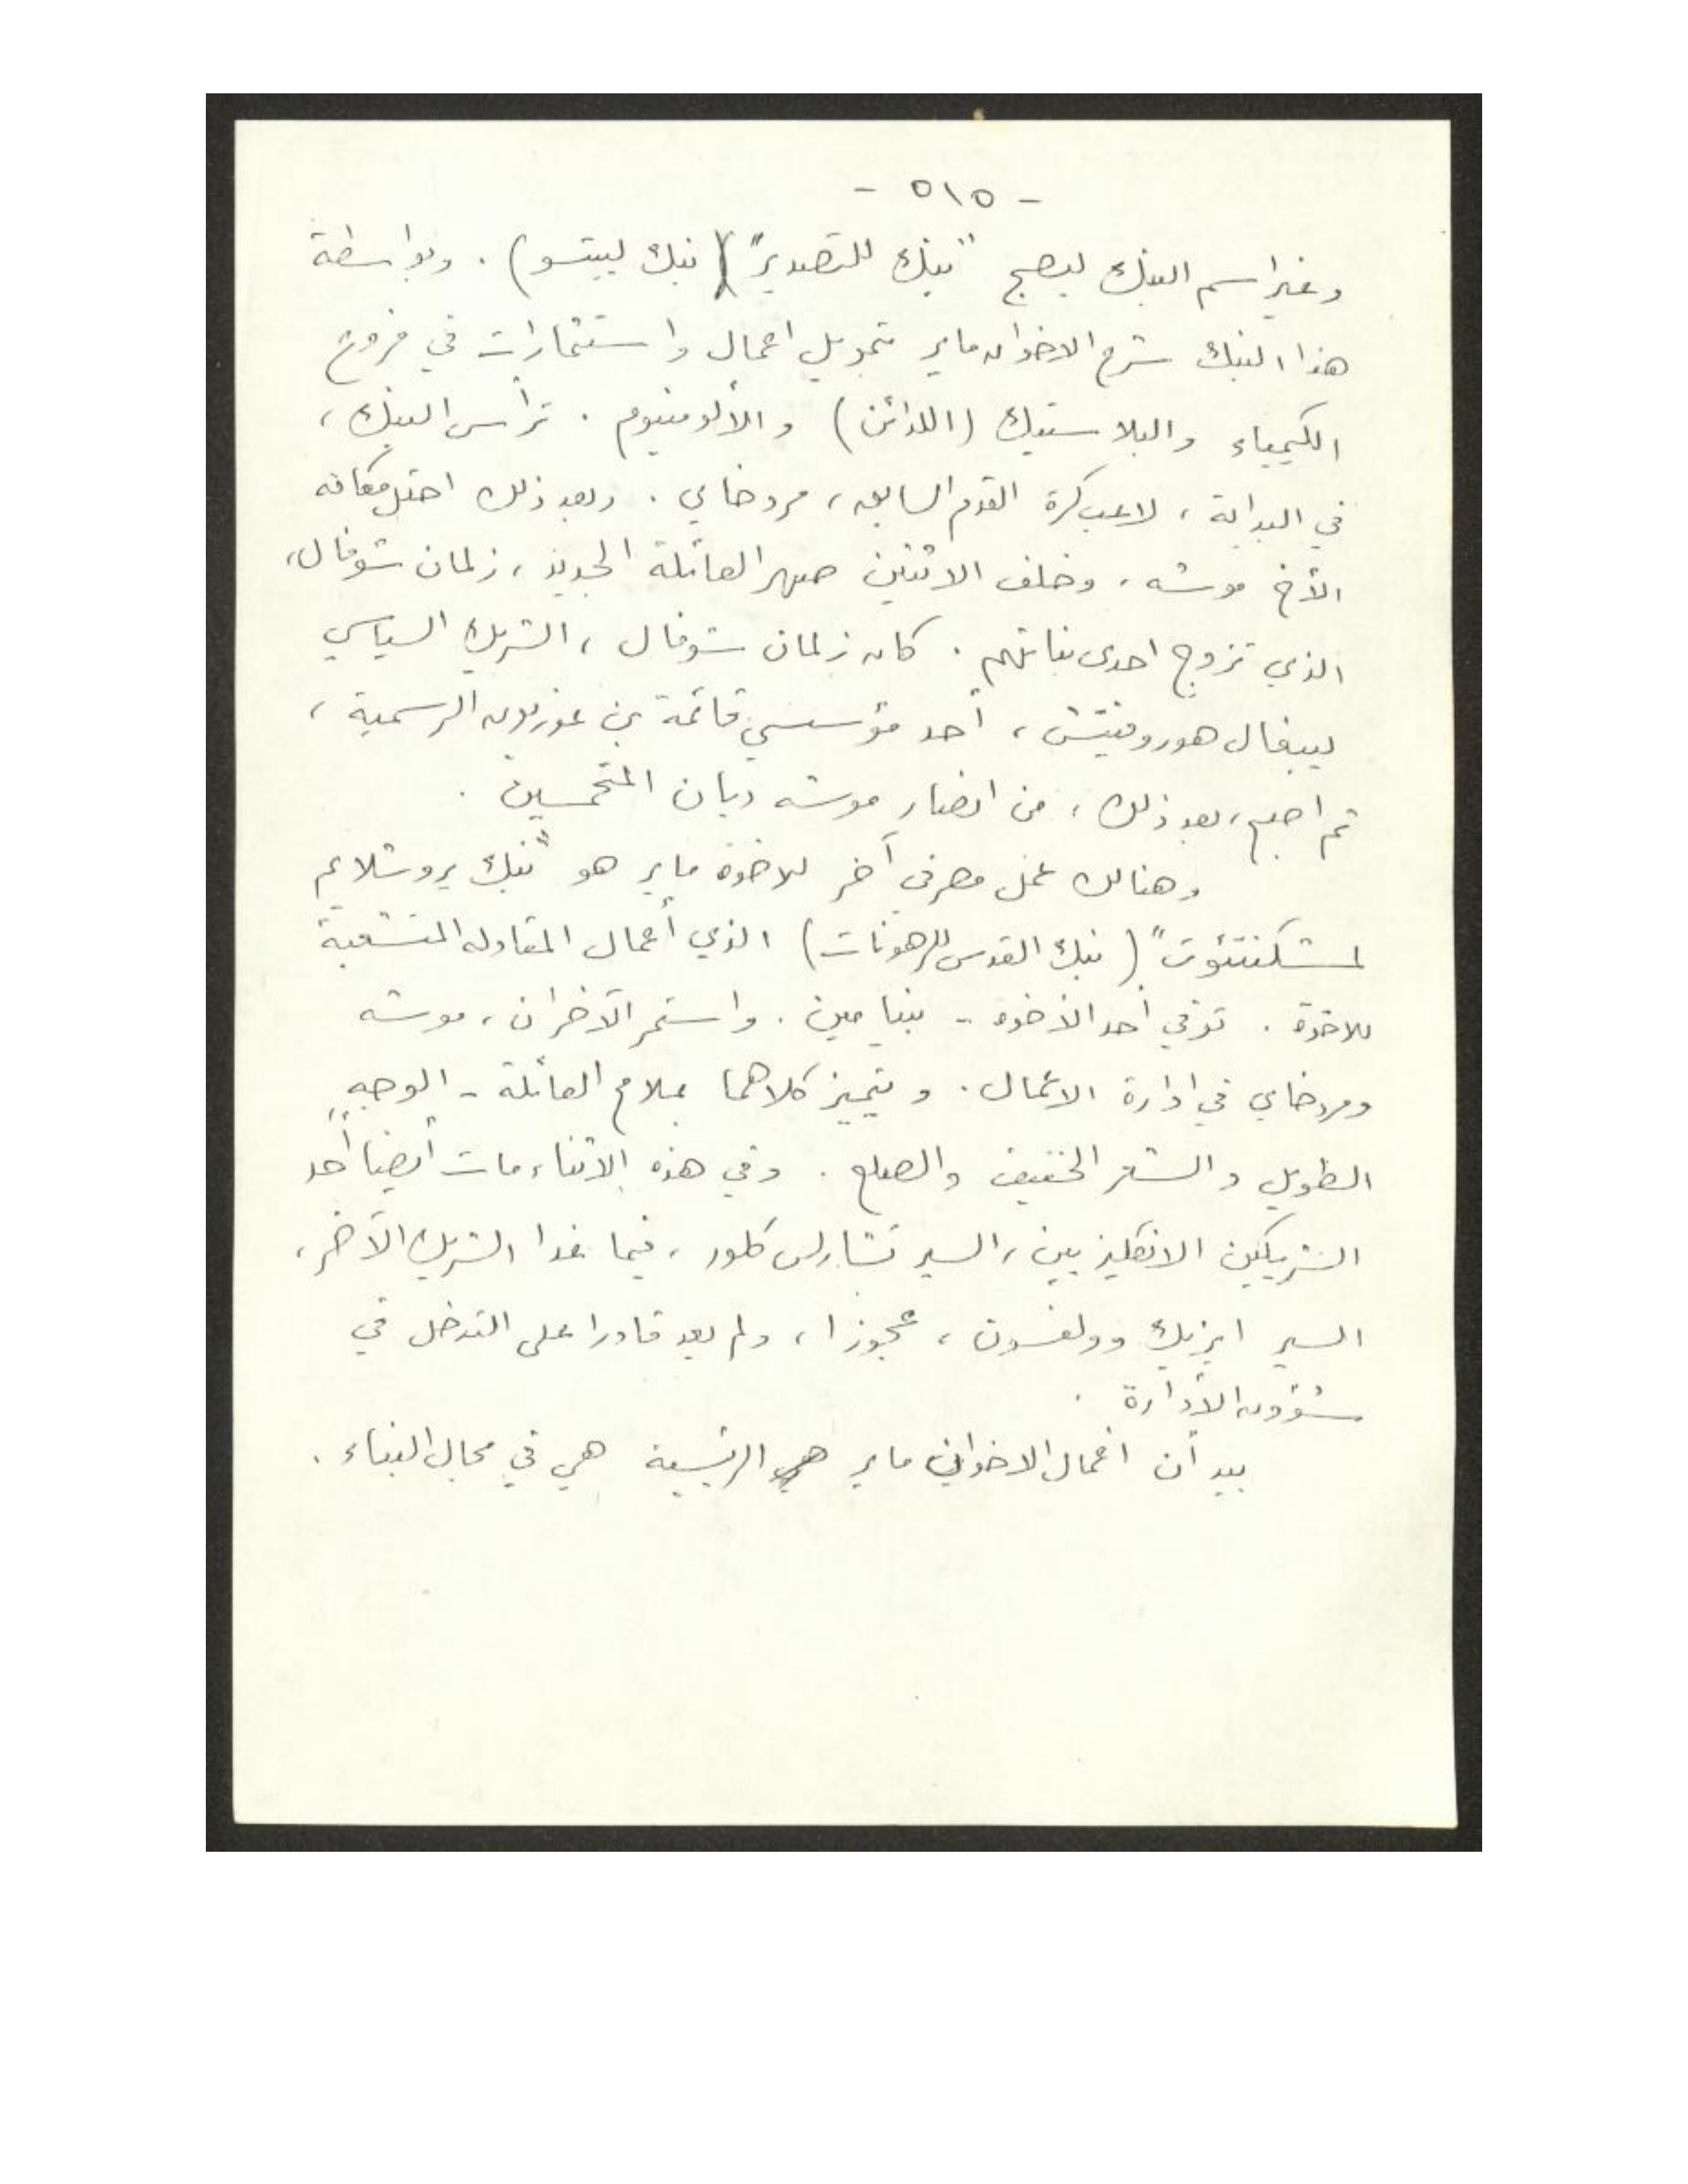 - ٥١٥ -
وغير اسم البنك ليصبح "بنك للتصدير" (بنك لييتسو) . وبواسطة
هذا البنك شرع الاخوان ماير تمويل اعمال واستثمارات في فروع
الكيمياء والبلاستيك (اللدائن) والألومنيوم . ترأس البنك ،
في البداية ، لاعب كرة القدم السابق ، مردخاي . وبعد ذلك احتل مكانه
الأخ موشه ، وخلف الاثنين صهر العائلة الجديد ، زلمان شوفال ،
الذي تزوج احدى بناتهم . كان زلمان شوفال ، الشريك السياسي
ليبغال هوروفيتش ، أحد مؤسسي قائمة بن غوريون الرسمية ،
ثم اصبح ، بعد ذلك ، من انصار موشه ديان المتحمسين .
وهنالك عمل مصرفي آخر للاخوة ماير هو "بنك يروشلايم
لمشكنتئوت" (بنك القدس للرهونات) الذي أعمال المقاوله المتشعبة
للاخوة . توفي أحد الأخوة - بنيامين . واستمر الآخران ، موشه
ومردخاي في ادارة الاعمال . ويتميز كلاهما بملامح العائلة - الوجه
الطويل والشعر الخفيف والصلع . وفي هذه الاثناء مات أيضاً أحد
الشريكين الانكليزيين ، السير تشارلس كلور ، فيما غدا الشريك الآخر ،
السير ايزيك وولفسون ، عجوزا ، ولم يعد قادرا على التدخل في
شؤون الأدارة .
بيد أن اعمال الاخوان ماير الرئيسية هي في مجال البناء .